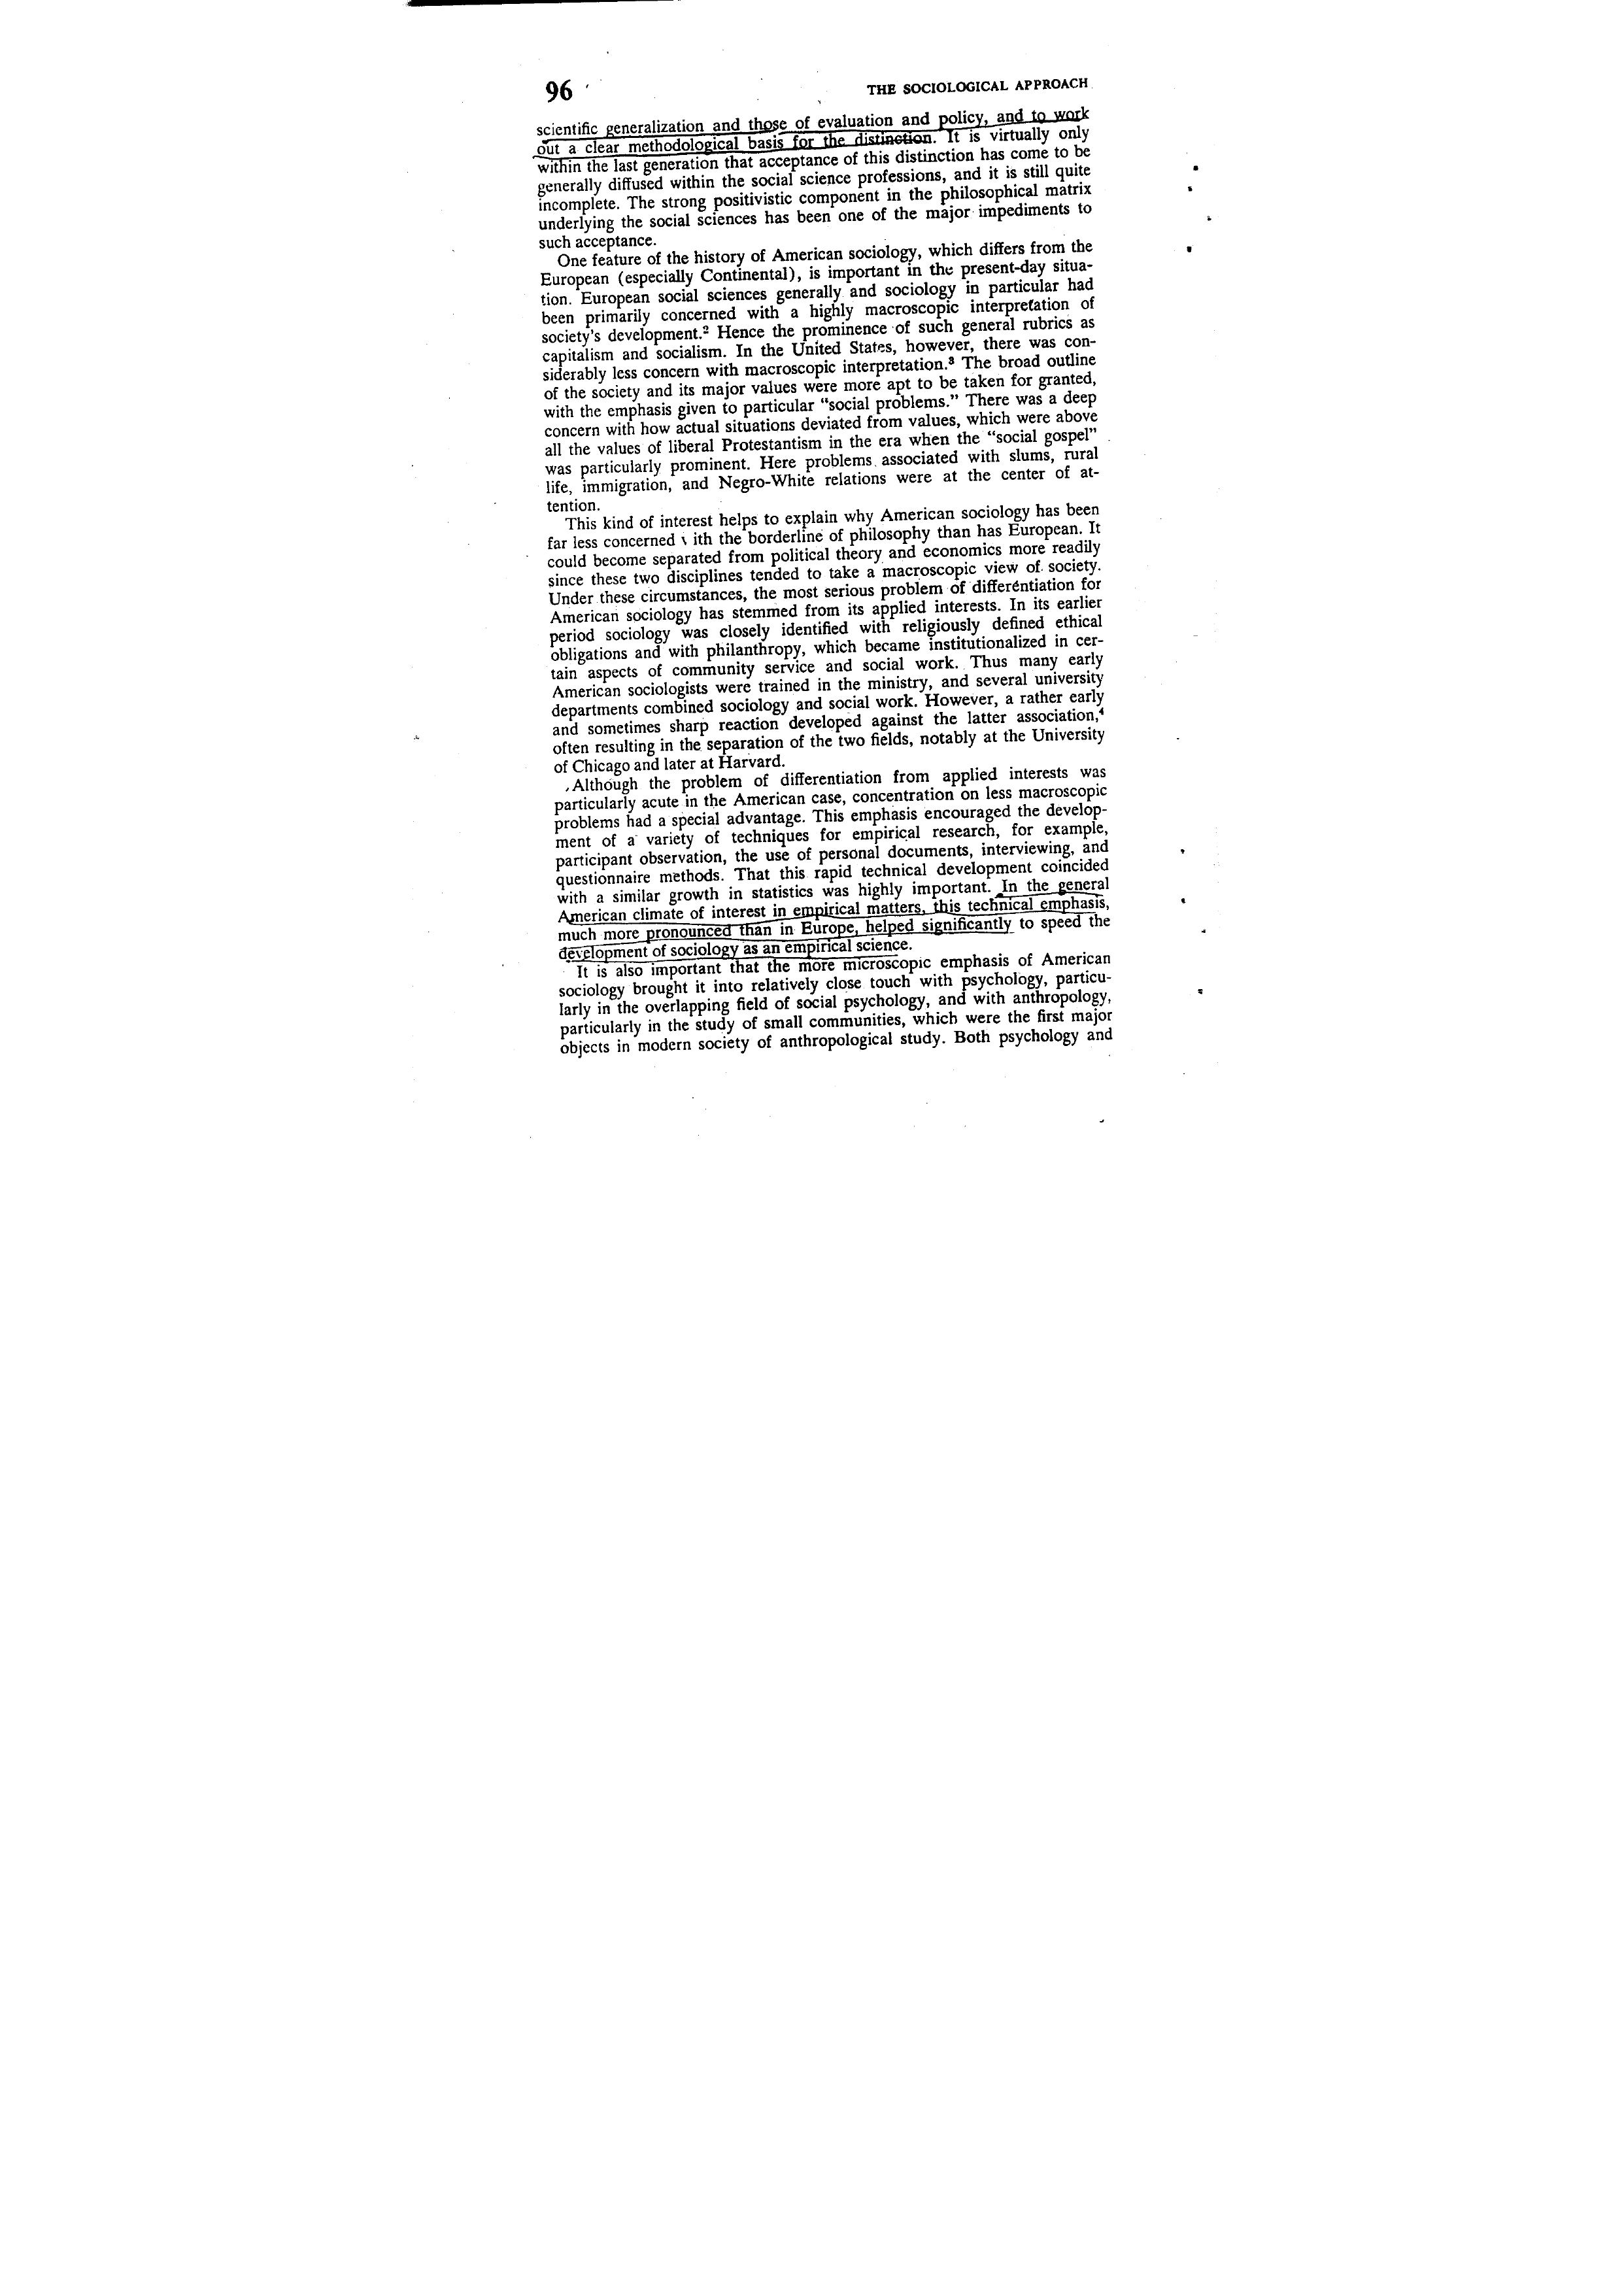 96
THE SOCIOLOGICAL APPROACH
scientific generalization and those of evaluation and policy, and to work
out a clear methodological basis for the distinction. It is virtually only
within the last generation that acceptance of this distinction has come to be
generally diffused within the social science professions, and it is still quite
incomplete. The strong positivistic component in the philosophical matrix
underlying the social sciences has been one of the major impediments to
such acceptance.
One feature of the history of American sociology, which differs from the
European (especially Continental), is important in the present-day situa-
tion. European social sciences generally and sociology in particular had
been primarily concerned with a highly macroscopic interpretation of
society's development.² Hence the prominence of such general rubrics as
capitalism and socialism. In the United States, however, there was con-
siderably less concern with macroscopic interpretation.³ The broad outline
of the society and its major values were more apt to be taken for granted,
with the emphasis given to particular “social problems.” There was a deep
concern with how actual situations deviated from values, which were above
all the values of liberal Protestantism in the era when the “social gospel”
was particularly prominent. Here problems associated with slums, rural
life, immigration, and Negro-White relations were at the center of at-
tention.
This kind of interest helps to explain why American sociology has been
far less concerned ith the borderline of philosophy than has European. It
could become separated from political theory and economics more readily
since these two disciplines tended to take a macroscopic view of society.
Under these circumstances, the most serious problem of differentiation for
American sociology has stemmed from its applied interests. In its earlier
period sociology was closely identified with religiously defined ethical
obligations and with philanthropy, which became institutionalized in cer-
tain aspects of community service and social work. Thus many early
American sociologists were trained in the ministry, and several university
departments combined sociology and social work. However, a rather early
and sometimes sharp reaction developed against the latter association,⁴
often resulting in the separation of the two fields, notably at the University
of Chicago and later at Harvard.
Although the problem of differentiation from applied interests was
particularly acute in the American case, concentration on less macroscopic
problems had a special advantage. This emphasis encouraged the develop-
ment of a variety of techniques for empirical research, for example,
participant observation, the use of personal documents, interviewing, and
questionnaire methods. That this rapid technical development coincided
with a similar growth in statistics was highly important. In the general
American climate of interest in empirical matters, this technical emphasis,
much more pronounced than in Europe, helped significantly to speed the
development of sociology as an empirical science.
It is also important that the more microscopic emphasis of American
sociology brought it into relatively close touch with psychology, particu-
larly in the overlapping field of social psychology, and with anthropology,
particularly in the study of small communities, which were the first major
objects in modern society of anthropological study. Both psychology and